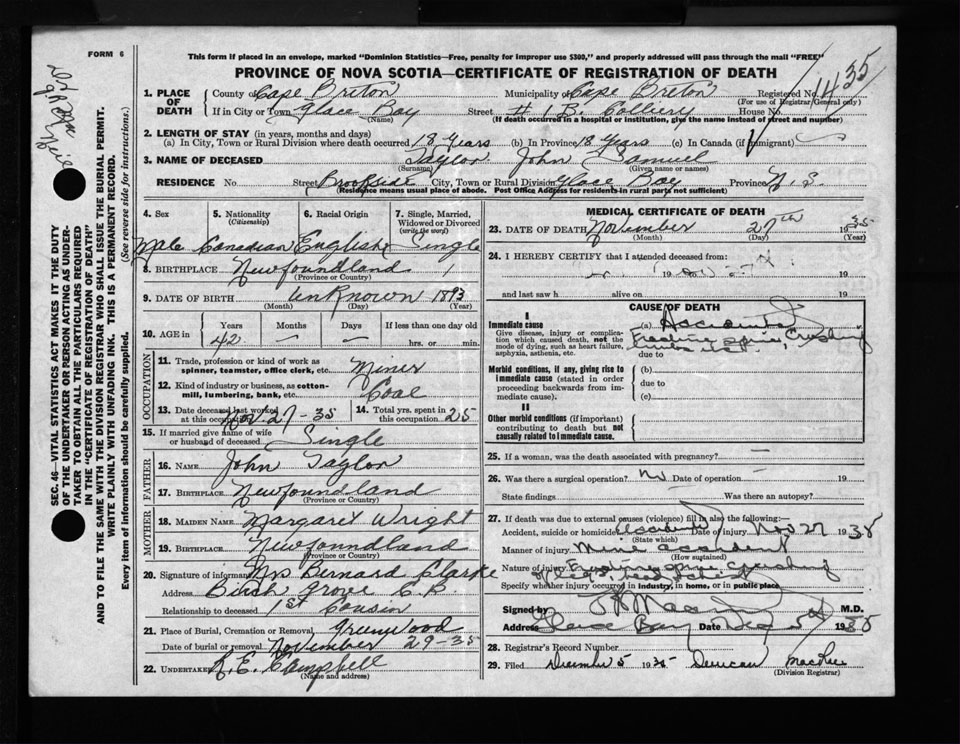 FORM 6
This form if placed in an envelope, marked "Dominion Statistics—Free, penalty for improper use $300," and properly addressed will pass through the mail "FREE"
PROVINCE OF NOVA SCOTIA—CERTIFICATE OF REGISTRATION OF DEATH
1. PLACE OF DEATH County of Cape Breton Municipality of Cape Breton Registered No. 1435
(For use of Registrar General only)
If in City or Town Glace Bay Street # 1 B. Colliery House No.
(Name) (If death occurred in a hospital or institution, give the name instead of street and number)
2. LENGTH OF STAY (in years, months and days)
(a) In City, Town or Rural Division where death occurred 18 Years (b) In Province 18 Years (c) In Canada (if immigrant)
3. NAME OF DECEASED Taylor John Samuel
(Surname) (Given name or names)
RESIDENCE No Street Brookside City, Town or Rural Division Glace Bay Province N. S.
(Residence means usual place of abode. Post Office Address for residents in rural parts not sufficient)
4. Sex 5. Nationality (Citizenship) 6. Racial Origin 7. Single, Married, Widowed or Divorced (write the word)
Male Canadian English Single
8. BIRTHPLACE Newfoundland
(Province or Country)
9. DATE OF BIRTH Unknown 1893
(Month) (Day) (Year)
10. AGE in Years Months Days If less than one day old
42 — — hrs. or min.
OCCUPATION
11. Trade, profession or kind of work as spinner, teamster, office clerk, etc. Miner
12. Kind of industry or business, as cotton-mill, lumbering, bank, etc. Coal
13. Date deceased last worked at this occupation Nov. 27-35 14. Total yrs. spent in this occupation 25
15. If married give name of wife or husband of deceased Single
FATHER
16. NAME John Taylor
17. BIRTHPLACE Newfoundland
(Province or Country)
MOTHER
18. MAIDEN NAME Margaret Wright
19. BIRTHPLACE Newfoundland
(Province or Country)
20. Signature of informant Mrs Bernard Clarke
Address Birch Grove C.B.
Relationship to deceased 1st Cousin
21. Place of Burial, Cremation or Removal Greenwood
Date of burial or removal November 29-35
22. UNDERTAKER Campbell
(Name and address)
MEDICAL CERTIFICATE OF DEATH
23. DATE OF DEATH November 27th 1935
(Month) (Day) (Year)
24. I HEREBY CERTIFY that I attended deceased from:
19 19
and last saw h alive on 19
CAUSE OF DEATH
I
Immediate cause
Give disease, injury or complication which caused death, not the mode of dying, such as heart failure, asphyxia, asthenia, etc.
(a) Accidental
Fracture spine, Crushing
due to
Morbid conditions, if any, giving rise to immediate cause (stated in order proceeding backwards from immediate cause).
(b)
due to
(c)
II
Other morbid conditions (if important) contributing to death but not causally related to immediate cause.
25. If a woman, was the death associated with pregnancy? —
26. Was there a surgical operation? No Date of operation —
State findings Was there an autopsy?
27. If death was due to external causes (violence) fill in also the following:—
Accident, suicide or homicide Accident Date of injury Nov 27 1935
(State which)
Manner of injury Mine accident
(How sustained)
Nature of injury Fracture spine, Crushing
Specify whether injury occurred in industry, in home, or in public place
Signed by M.D.
Address Glace Bay Date Dec 5th 1935
28. Registrar's Record Number
29. Filed December 5 1935 Duncan
(Division Registrar)
SEC. 46—VITAL STATISTICS ACT MAKES IT THE DUTY
OF THE UNDERTAKER OR PERSON ACTING AS UNDER-
TAKER TO OBTAIN ALL THE PARTICULARS REQUIRED
IN THE "CERTIFICATE OF DEATH"
AND TO FILE THE SAME WITH THE DIVISION REGISTRAR WHO SHALL ISSUE THE BURIAL PERMIT.
WRITE PLAINLY WITH UNFADING INK. THIS IS A PERMANENT RECORD.
Every item of information should be carefully supplied. (See reverse side for instructions.)